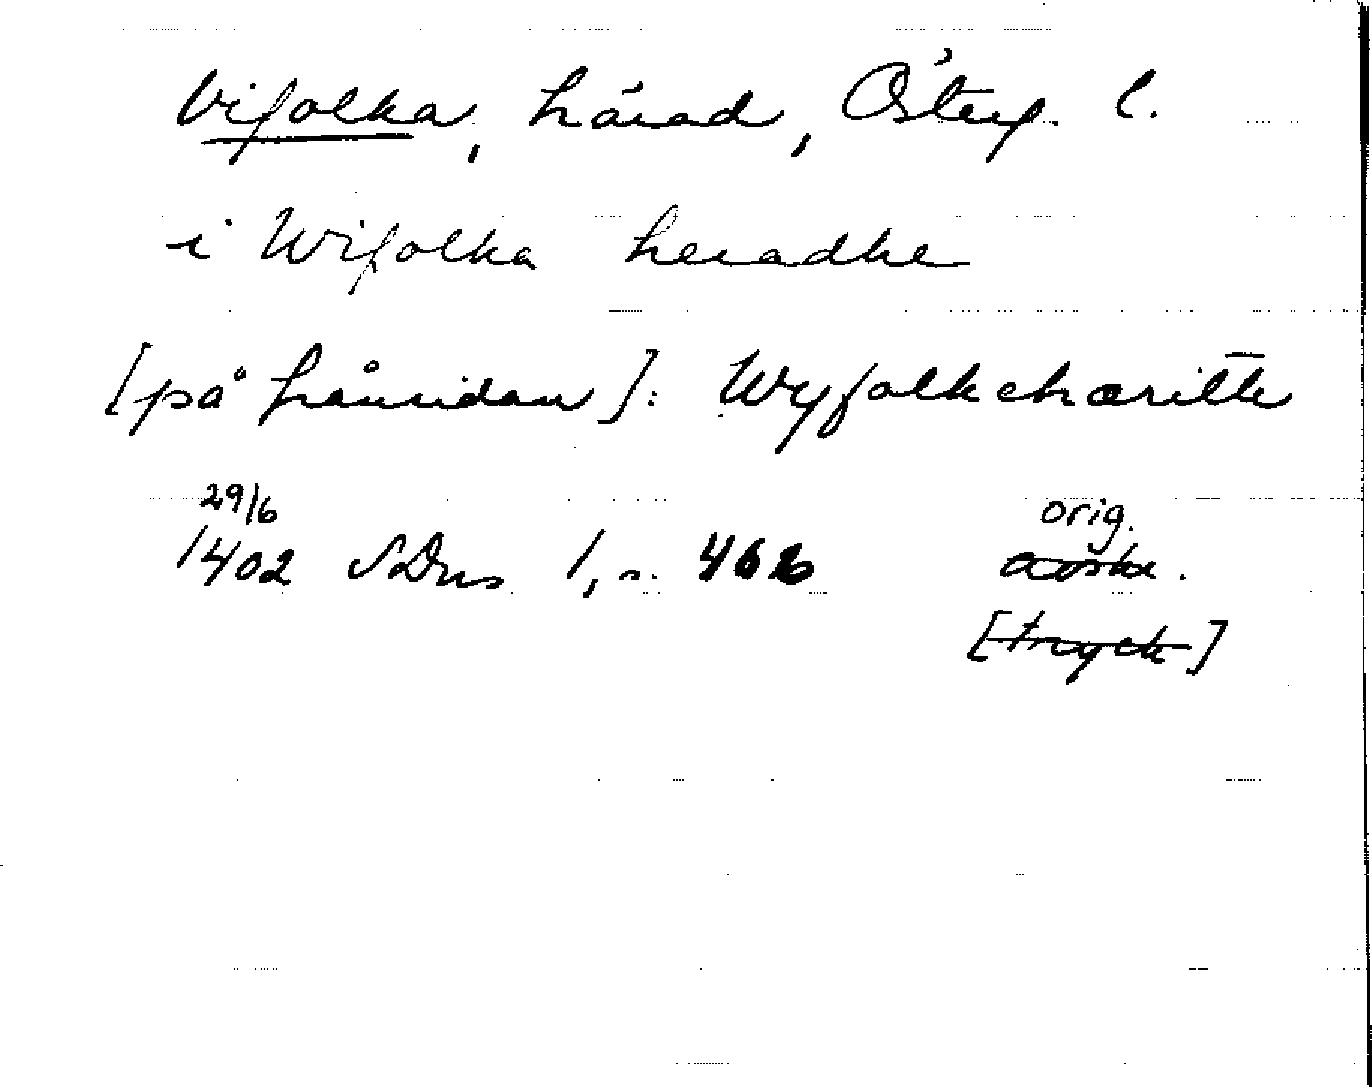 Vifolka, härad, Österg. l.
i Wifolka heradhe
[på frånsidan]: Wyfolkchæritte
29/6 orig.
1402 SDns 1, s. 466 avskr.
[tryck]